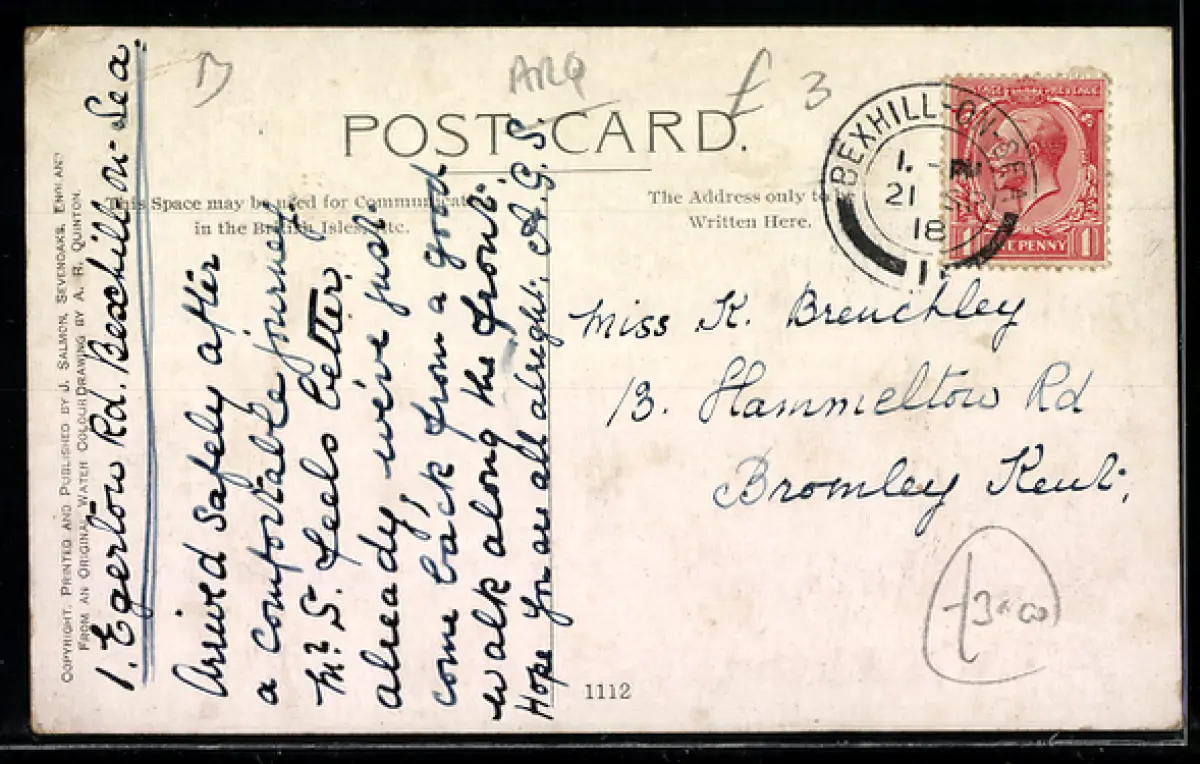 B
ARQ
£ 3
POST CARD.
This Space may be used for Communication
in the British Isles, etc.
The Address only to be
Written Here.
BEXHILL-ON-SEA
1. - PM
21
18
ONE PENNY
1
1
COPYRIGHT. PRINTED AND PUBLISHED BY J. SALMON, SEVENOAKS, ENGLAND
FROM AN ORIGINAL WATER COLOUR DRAWING BY A. R. QUINTON.
1. Egerton Rd. Bexhill on Sea.
Arrived safely after
a comfortable journey
Mr. S. feels better
already, we've just
come back from a good
walk along the front.
Hope you are all alright. A. G. S.
Miss K. Brenchley
13. Hammelton Rd
Bromley Kent.
1112
£3=00